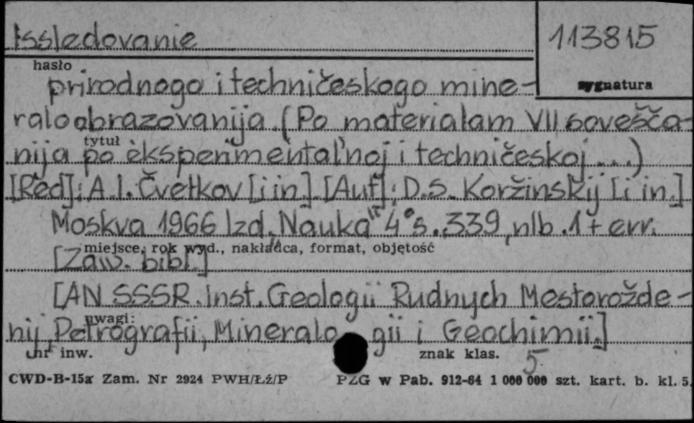 Issledovanie
113815
hasło
prirodnogo i techničeskogo mine-
sygnatura
raloobrazovanija. (Po materiałam VII sovešča-
tytuł
nija po èksperimentaľnoj i techničeskoj...)
[Red]: A.I. Čvetkov [i in.] [Aut]: D.S. Koržinskij [i in.]
Moskva 1966 Izd. „Nauka" 4° s. 339, nlb. 1 + err.
miejsce, rok wyd., nakładca, format, objętość
[Zaw. bibl.]
[AN SSSR. Inst. Geologii Rudnych Mestorožde-
uwagi:
nij, Petrografii, Mineralogii i Geochimii.]
nr inw.
znak klas.
5
CWD-B-15a Zam. Nr 2924 PWH/Łź/P PZG w Pab. 912-64 1 000 000 szt. kart. b. kl. 5.